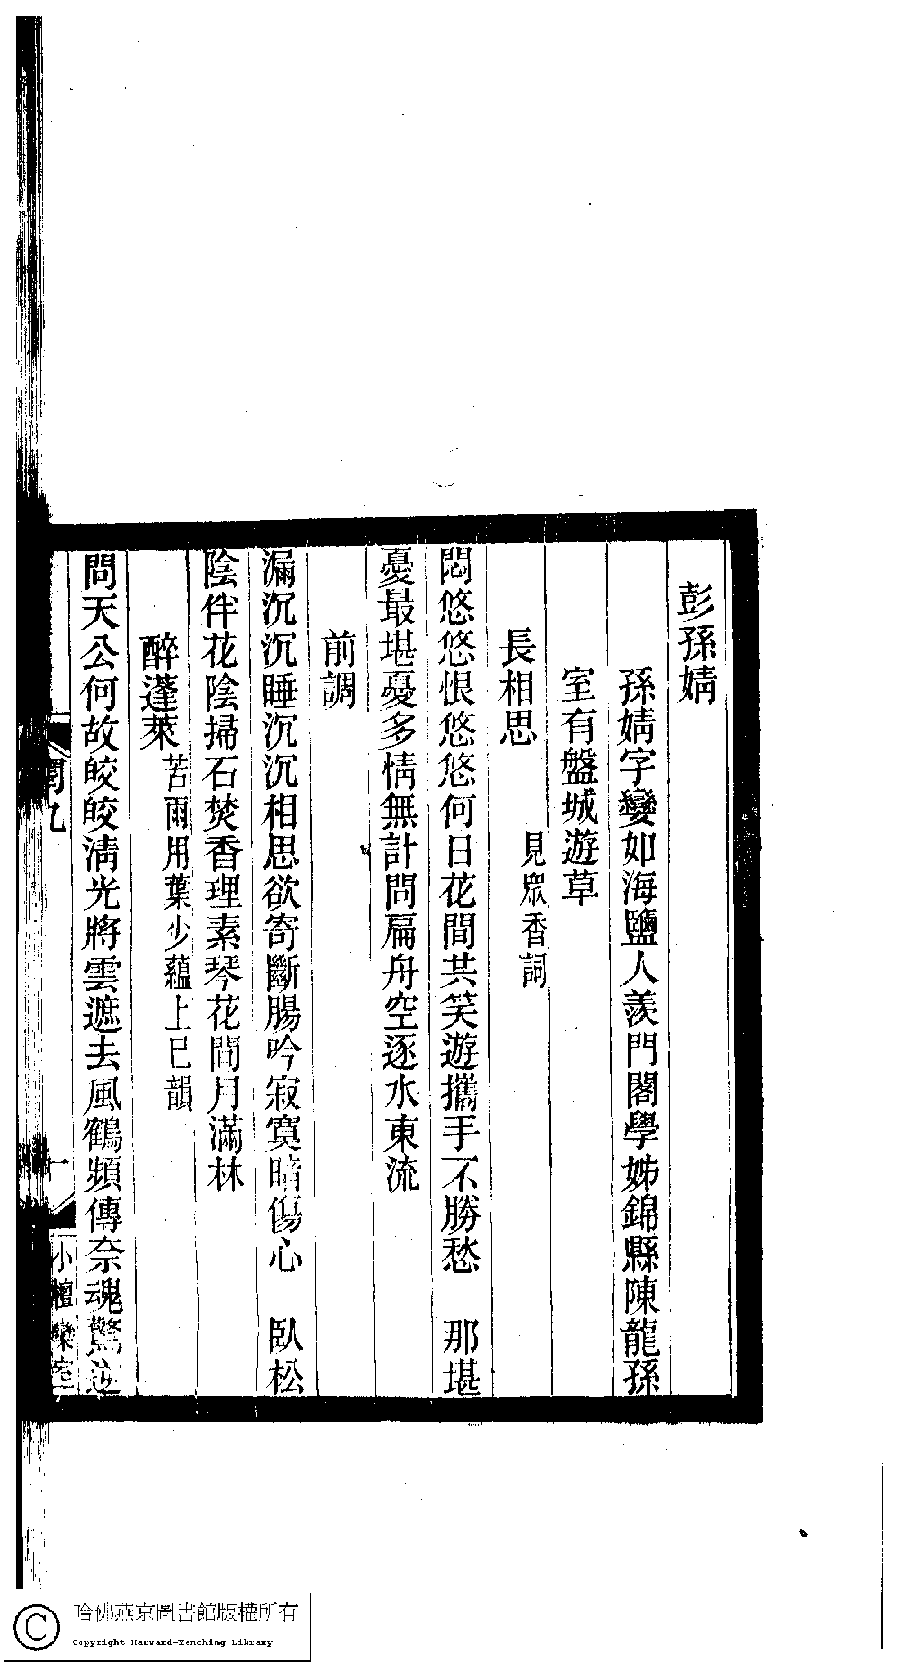 彭孫婧
孫婧字孌如海鹽人羨門閣學姊錦縣陳龍孫
室有盤城遊草
長相思　見眾香詞
悶悠悠恨悠悠何日花間共笑遊攜手不勝愁　那堪
憂最堪憂多情無計問扁舟空逐水東流
前調
漏沉沉睡沉沉相思欲寄斷腸吟寂寞暗傷心　臥松
陰伴花陰掃石焚香理素琴花間月滿林
醉蓬萊苦雨用葉少蘊上巳韻
問天公何故皎皎淸光將雲遮去風鶴頻傳奈魂驚逆
閏九
一
小檀欒室
哈佛燕京圖書館版權所有
Copyright Harvard-Yenching Library